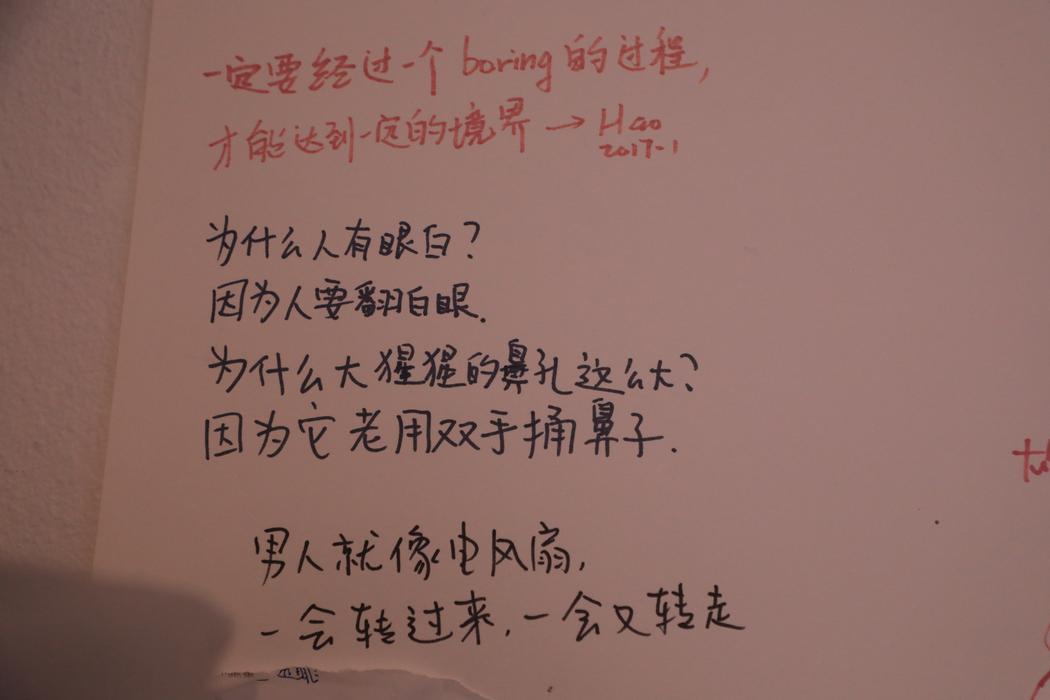 一定要经过一个 boring 的过程,
才能达到一定的境界 → Hao
2017-1
为什么人有眼白?
因为人要翻白眼.
为什么大猩猩的鼻孔这么大?
因为它老用双手捅鼻子.
男人就像电风扇,
一会转过来,一会又转走